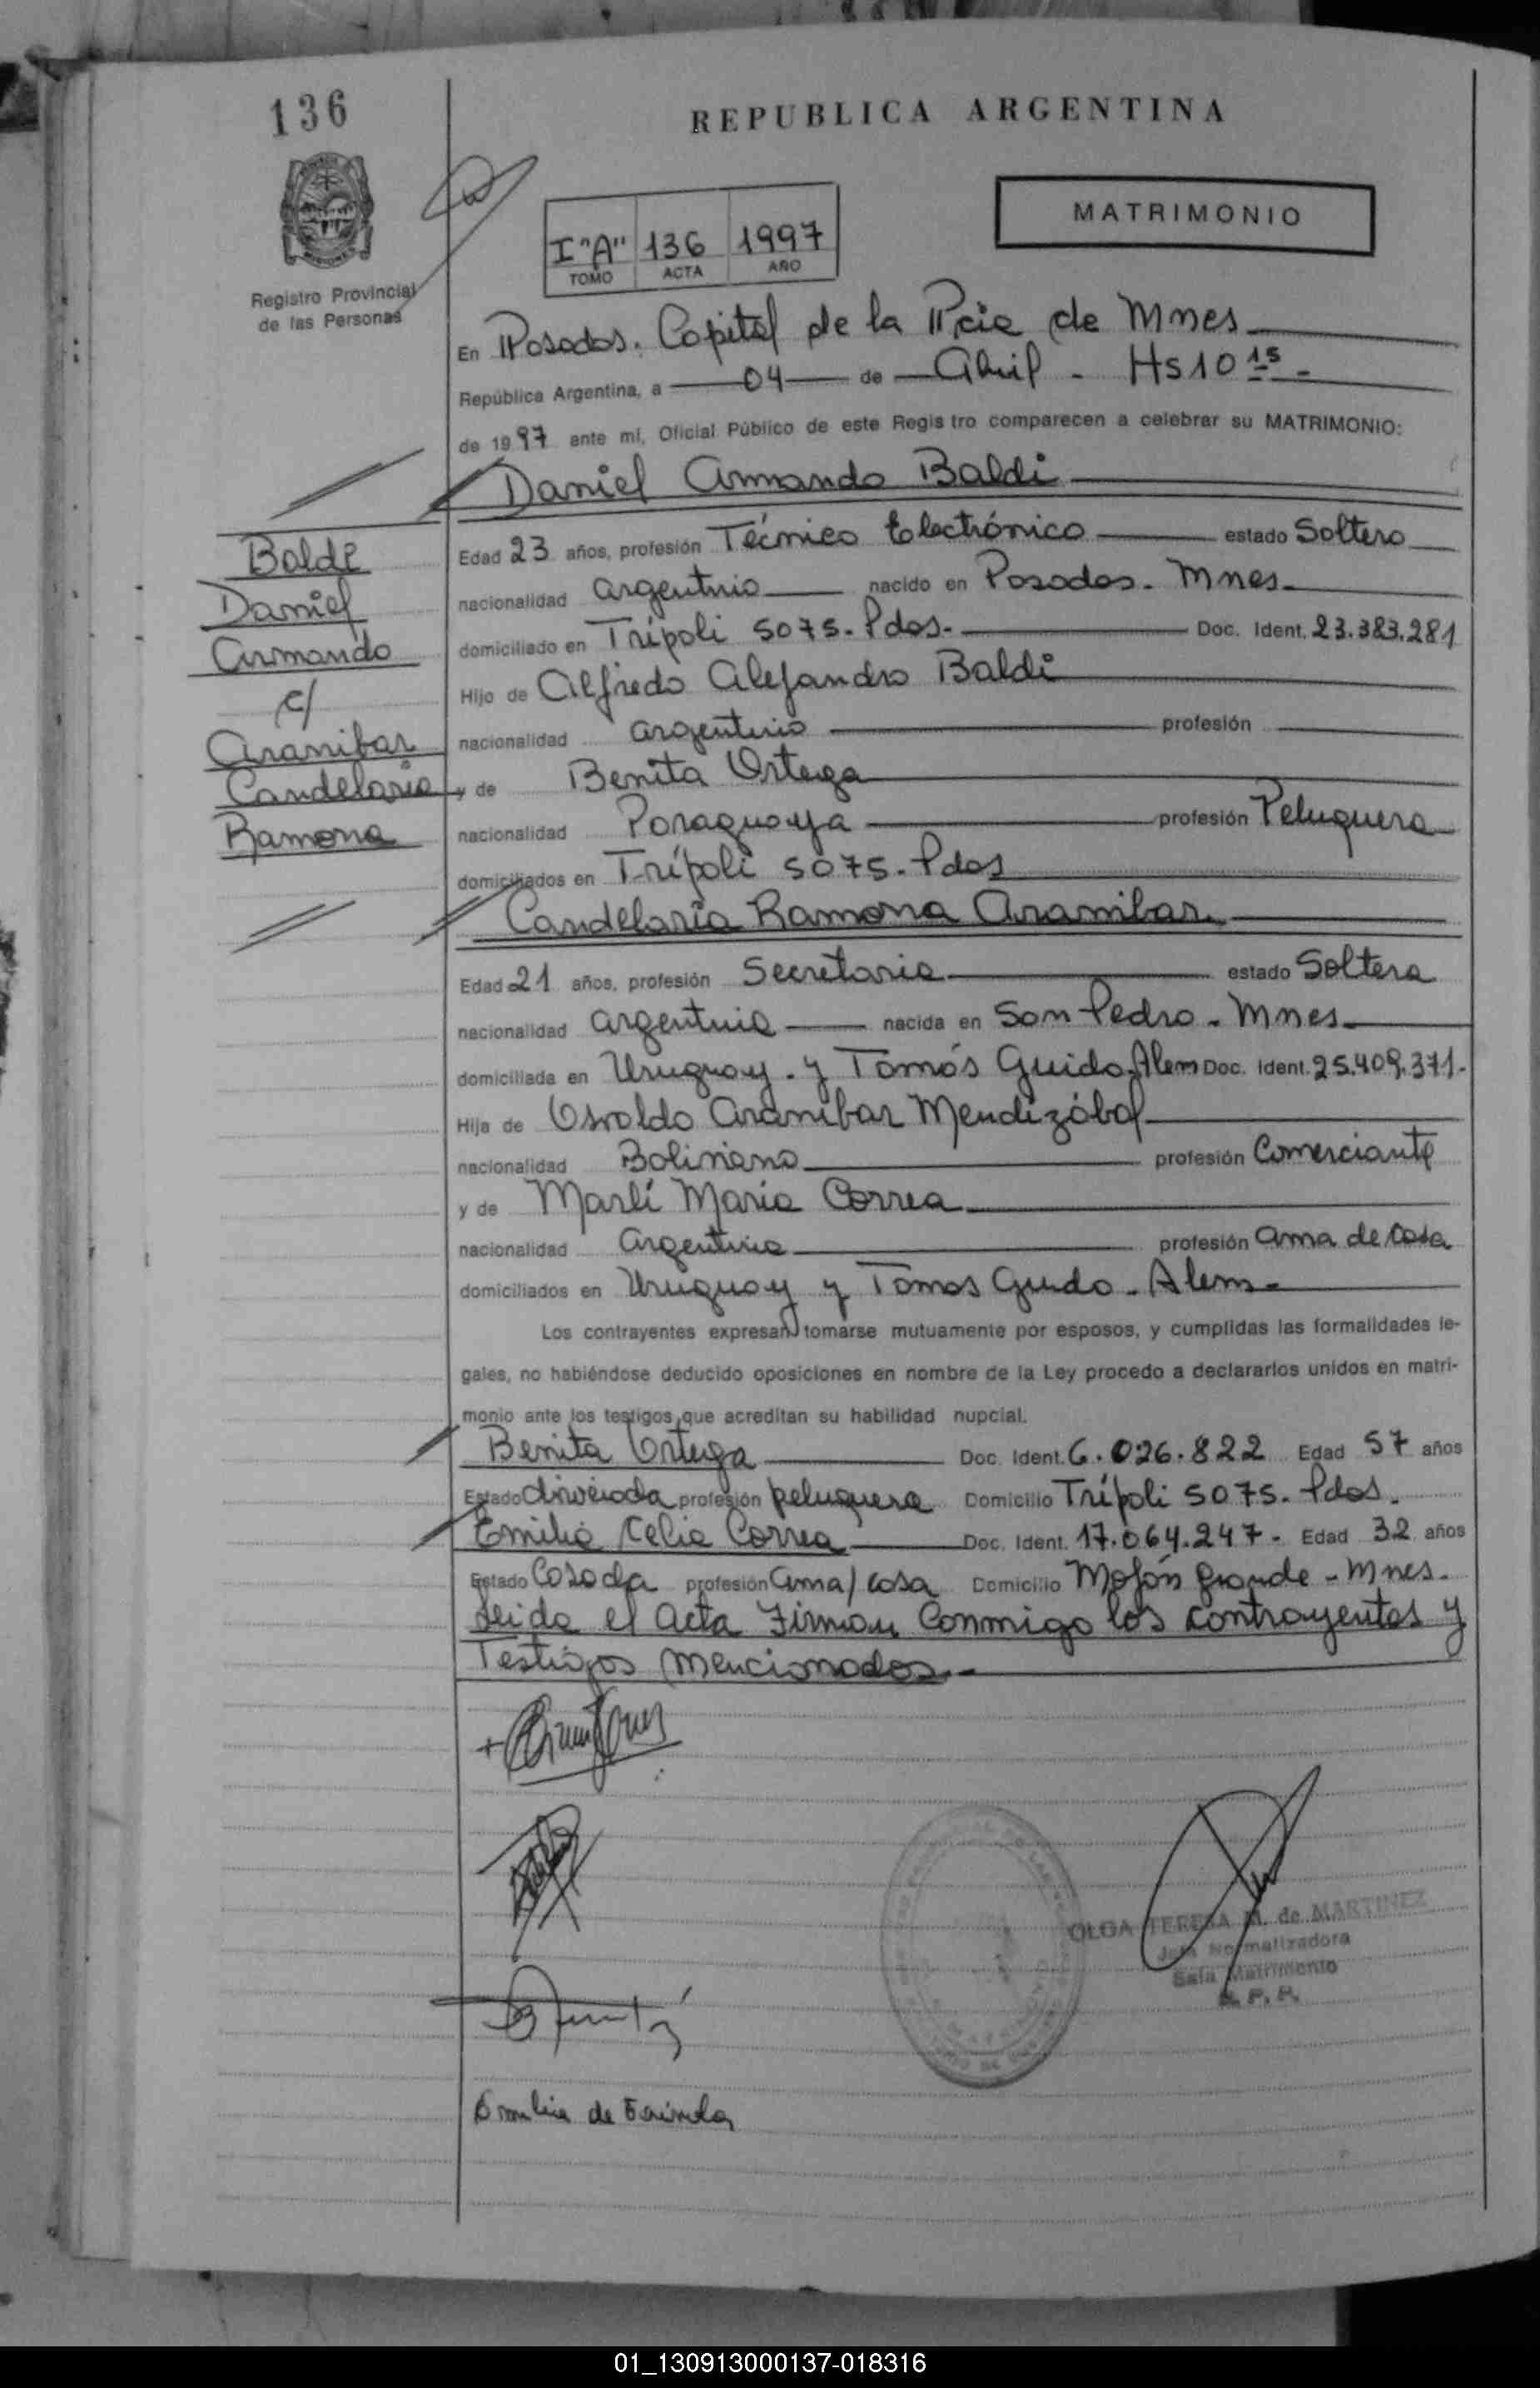 136
REPUBLICA ARGENTINA
MATRIMONIO
I "A" 136 1997
TOMO ACTA AÑO
Registro Provincial
de las Personas
En Posadas. Capital de la Pcia de Mnes
República Argentina, a 04 de Abril - Hs 10 15 -
de 1997 ante mí, Oficial Público de este Registro comparecen a celebrar su MATRIMONIO:
Daniel Armando Baldi
Baldi
Daniel
Armando
c/
Aranibar
Candelaria
Ramona
Edad 23 años, profesión Técnico Electrónico estado Soltero
nacionalidad argentino nacido en Posadas - Mnes.
domiciliado en Trípoli 5075 - Pdas. Doc. Ident. 23.383.281
Hijo de Alfredo Alejandro Baldi
nacionalidad argentino profesión
y de Benita Ortega
nacionalidad Paraguaya profesión Peluquera
domiciliados en Trípoli 5075 - Pdas
Candelaria Ramona Aranibar
Edad 21 años, profesión Secretaria estado Soltera
nacionalidad argentina nacida en San Pedro - Mnes.
domiciliada en Uruguay - y Tomás Guido. Alem Doc. Ident. 25.409.371.
Hija de Osvaldo Aranibar Mendizábal
nacionalidad Boliviano profesión Comerciante
y de Marlí María Correa
nacionalidad Argentina profesión ama de casa
domiciliados en Uruguay y Tomas Guido - Alem -
Los contrayentes expresan tomarse mutuamente por esposos, y cumplidas las formalidades le-
gales, no habiéndose deducido oposiciones en nombre de la Ley procedo a declararlos unidos en matri-
monio ante los testigos que acreditan su habilidad nupcial.
Benita Ortega Doc. Ident. 6.026.822 Edad 57 años
Estado divorciada profesión peluquera Domicilio Trípoli 5075 - Pdas.
Emilia Celia Correa Doc. Ident. 17.064.247 - Edad 32 años
Estado Casada profesión ama/casa Domicilio Mojón Grande - Mnes.
Leida el acta Firman Conmigo los contrayentes y
Testigos mencionados.-
OLGA TERESA M. de MARTINEZ
Jefa Normalizadora
Sala Matrimonio
R. P. P.
de
01_130913000137-018316